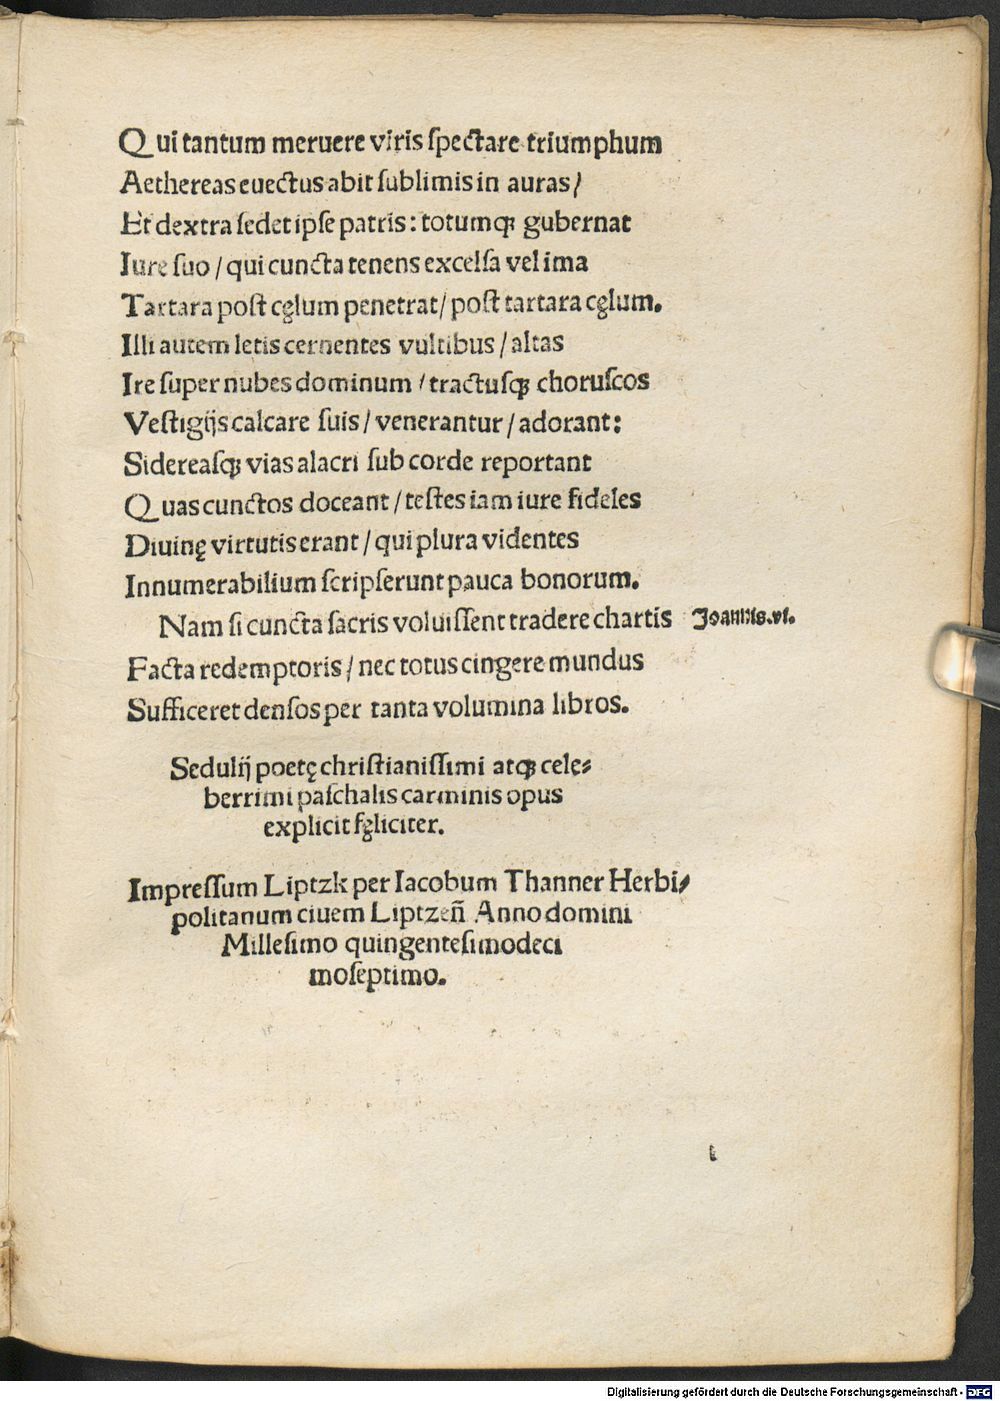 Qui tantum meruere viris ſpectare triumphum
Aethereas euectus abit ſublimis in auras/
Et dextra ſedet ipſe patris: totumqꝫ gubernat
Iure ſuo / qui cuncta tenens excelſa vel ima
Tartara poſt cęlum penetrat/ poſt tartara cęlum.
Illi autem letis cernentes vultibus / altas
Ire ſuper nubes dominum / tractuſqꝫ choruſcos
Veſtigijs calcare ſuis / venerantur / adorant:
Sidereaſqꝫ vias alacri ſub corde reportant
Quas cunctos doceant / teſtes iam iure fideles
Diuinę virtutis erant / qui plura videntes
Innumerabilium ſcripſerunt pauca bonorum.
Nam ſi cuncta ſacris voluiſſent tradere chartis Joannis.vi.
Facta redemptoris / nec totus cingere mundus
Sufficeret denſos per tanta volumina libros.
Sedulij poetę chriſtianiſſimi atqꝫ cele⸗
berrimi paſchalis carminis opus
explicit fęliciter.
Impreſſum Liptzk per Iacobum Thanner Herbi⸗
politanum ciuem Liptzeñ Anno domini
Milleſimo quingenteſimodeci
moſeptimo.
Digitalisierung gefördert durch die Deutsche Forschungsgemeinschaft - DFG